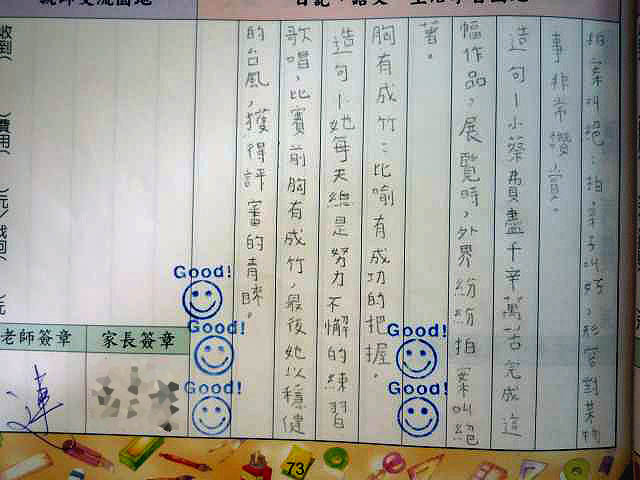 拍案叫絕：拍桌子叫好，形容對某物
事非常讚賞。
造句—小蔡費盡千辛萬苦完成這
幅作品，展覽時，外界紛紛拍案叫絕
著。
胸有成竹：比喻有成功的把握。
造句—她每天總是努力不懈的練習
歌唱，比賽前胸有成竹，最後她以穩健
的台風，獲得評審的青睞。
Good!
Good!
Good!
Good!
Good!
家長簽章
老師簽章
連
73